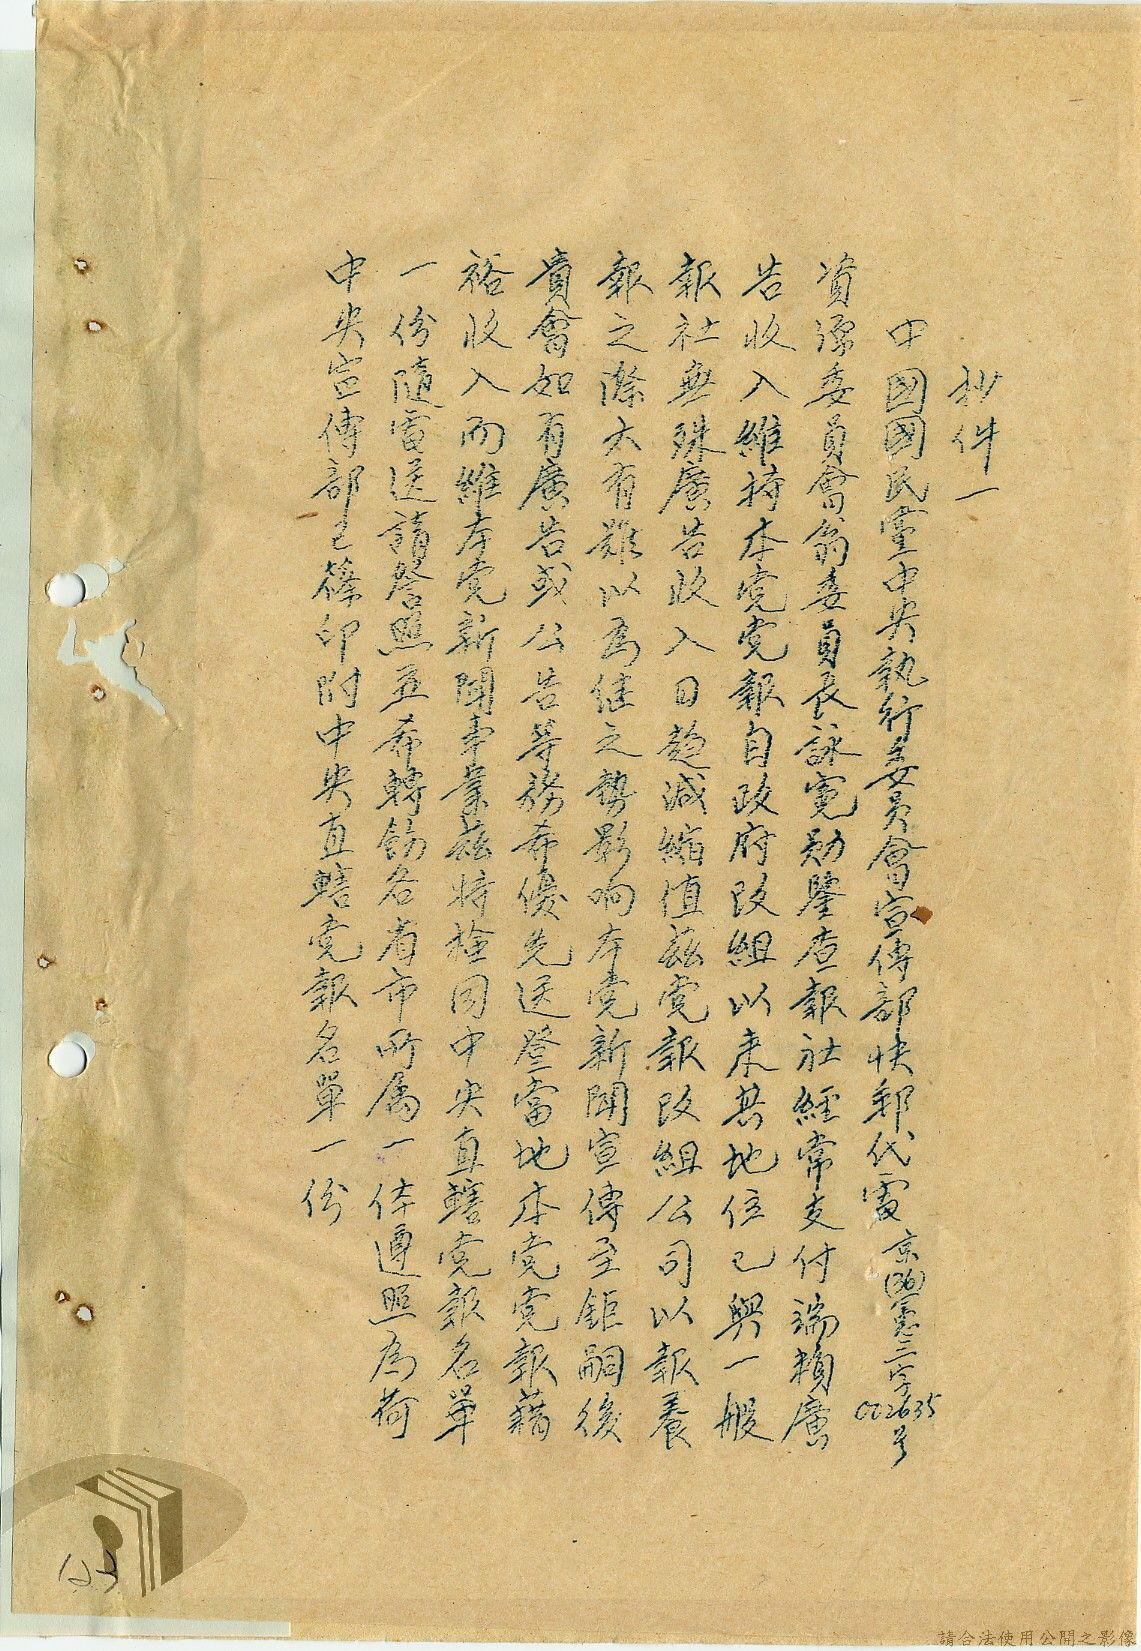 抄件一
中國國民黨中央執行委員會宣傳部快郵代電 京(36)憲三字002635号
資源委員會翁委員長詠霓勛鑒查報社經常支付端賴廣
告收入維持本党党報自政府改組以来其地位已與一般
報社無殊廣告收入日趋減縮值茲党報改組公司以報養
報之際大有難以為继之勢影响本党新聞宣傳至鉅嗣後
貴會如有廣告或公告等務希優先送登當地本党党報藉
裕收入而維本党新聞事業茲特檢同中央直轄党報名單
一份隨電送請詧照並希轉飭各省市所属一体遵照為荷
中央宣傳部 篠印附中央直轄党報名單一份
123
請合法使用公開之影像